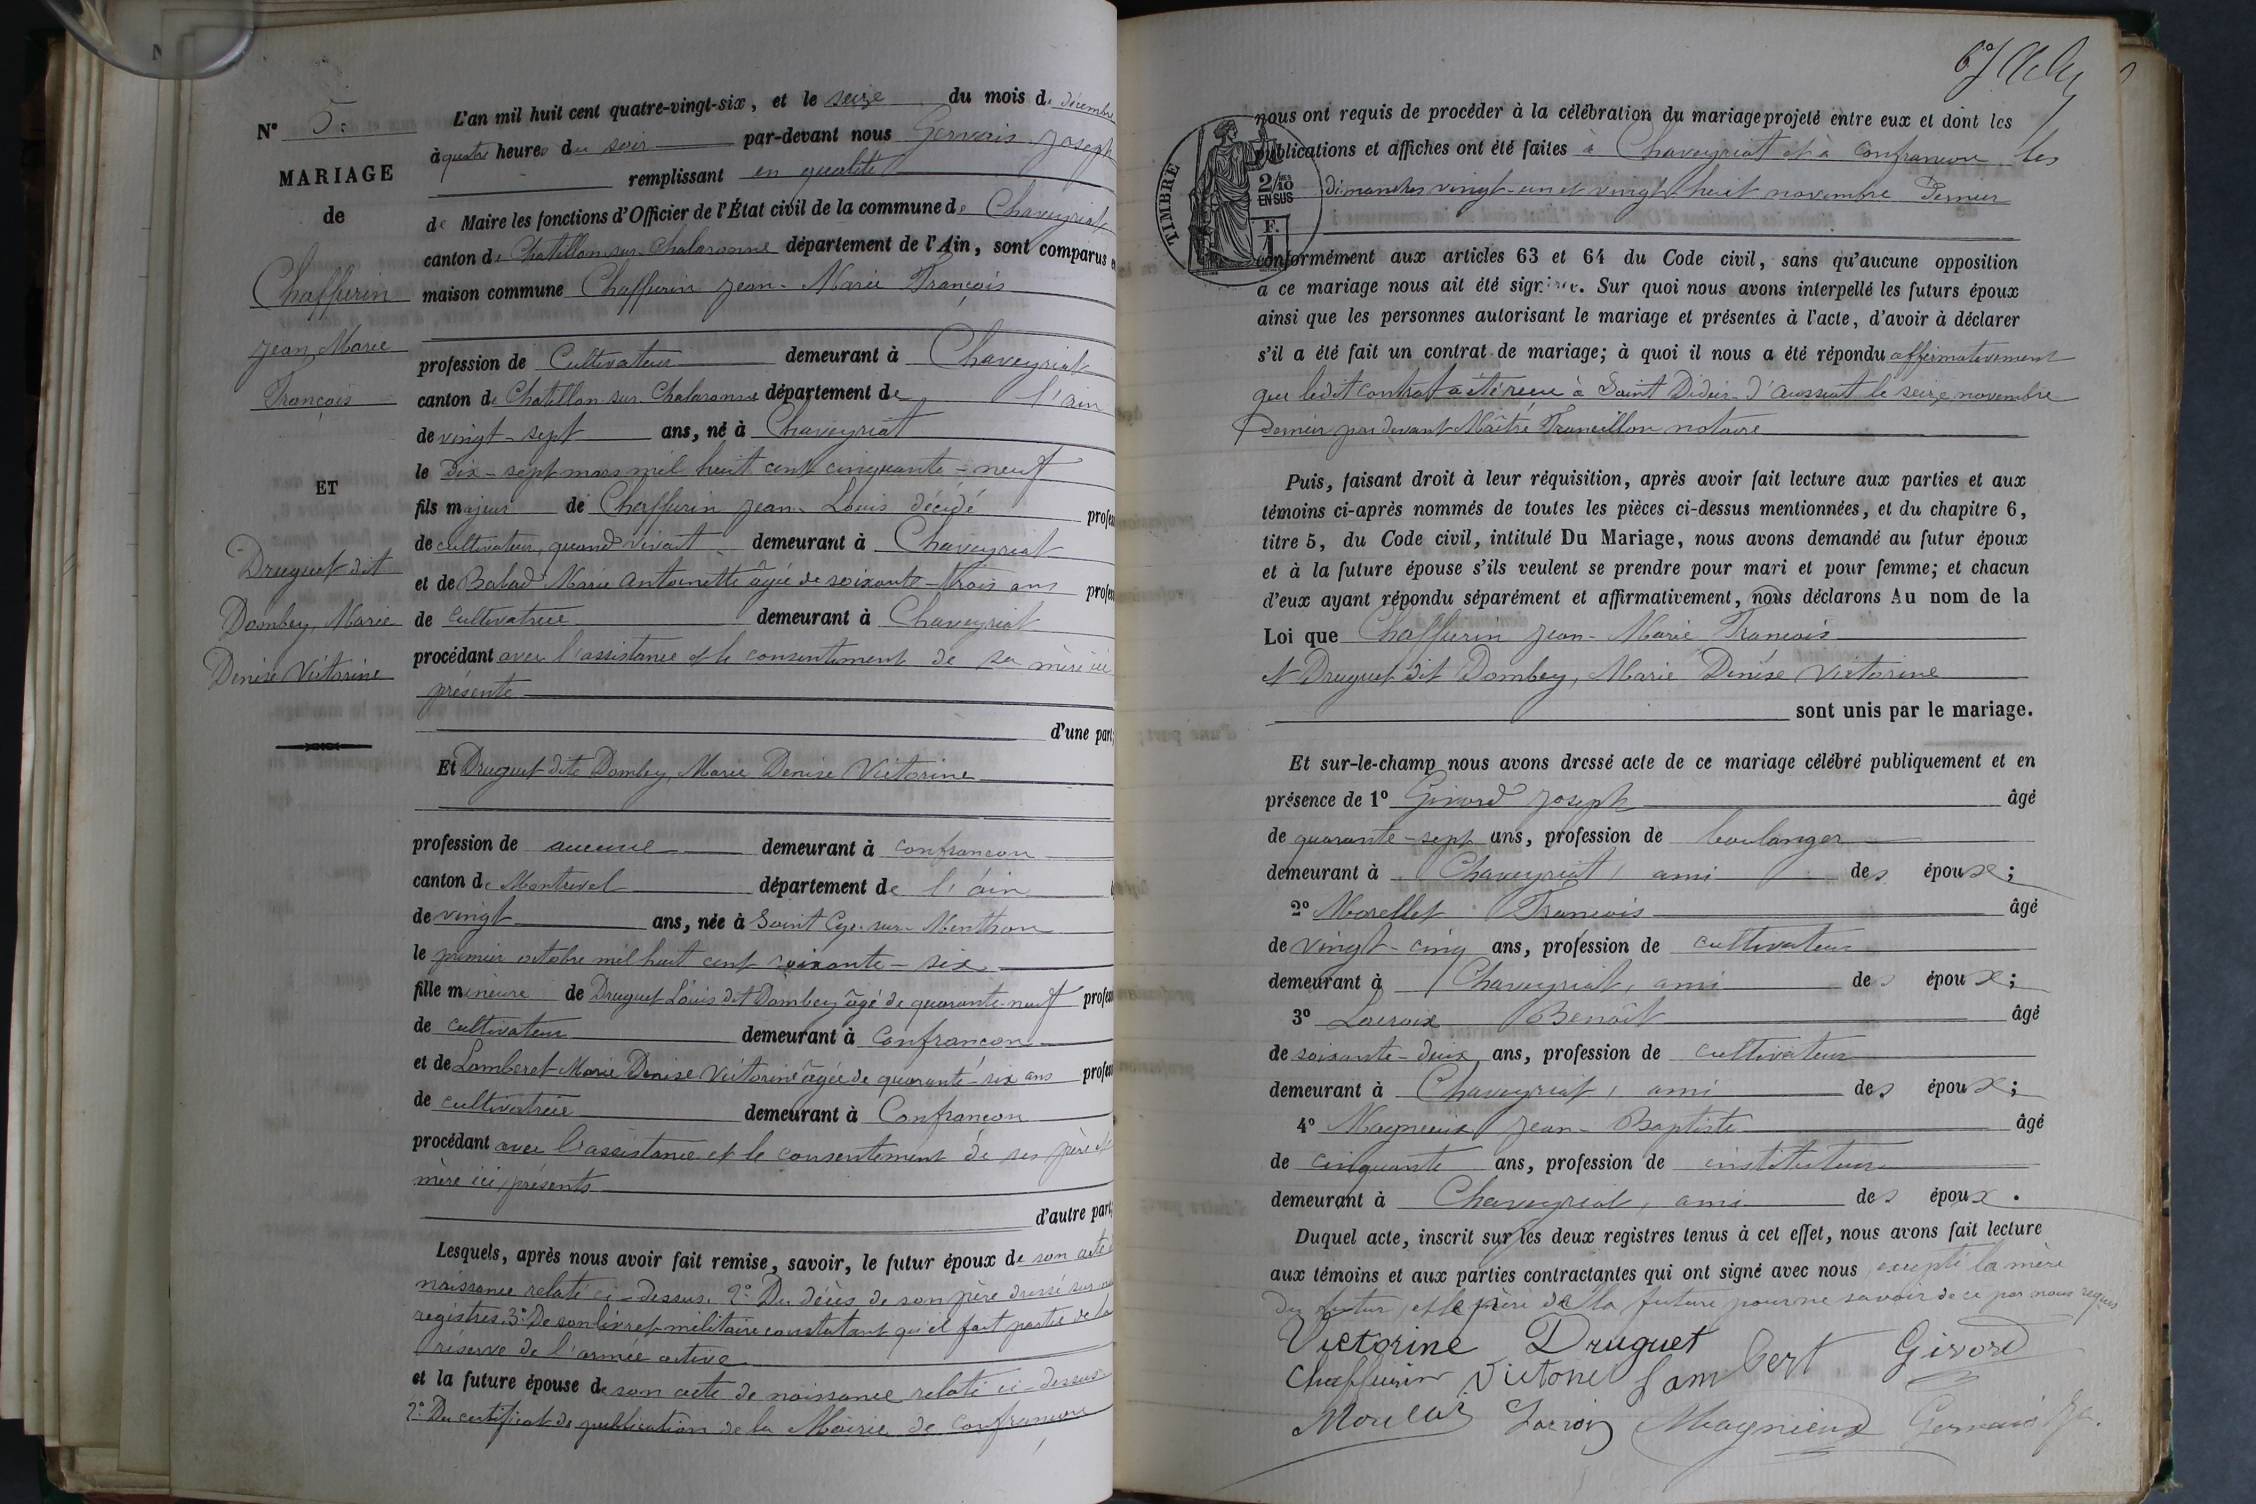 N° 5
MARIAGE
de
Chaffurin
Jean Marie
François
ET
Druguet dit
Dombey, Marie
Denise Victorine
L'an mil huit cent quatre-vingt-six, et le seize du mois de décembre
à quatre heures du soir par-devant nous Gervais Joseph
remplissant en qualité
de Maire les fonctions d'Officier de l'État civil de la commune de Chaveyriat
canton de Chatillon-sur-Chalaronne département de l'Ain, sont comparus e
maison commune Chaffurin Jean-Marie François
profession de Cultivateur demeurant à Chaveyriat
canton de Chatillon-sur-Chalaronne département de l'ain
de vingt-sept ans, né à Chaveyriat
le Dix-sept mars mil huit cent cinquante-neuf
fils majeur de Chaffurin Jean-Louis décédé profes
de cultivateur, quand vivait demeurant à Chaveyriat
et de Balad Marie Antoinette âgée de soixante-trois ans profes
de cultivatrice demeurant à Chaveyriat
procédant avec l'assistance et le consentement de sa mère ici
présente
d'une part;
Et Druguet dite Dombey, Marie Denise Victorine
profession de aucune demeurant à Confrancon
canton de Montrevel département de l'ain
de vingt ans, née à Saint Cyr-sur-Menthon
le premier octobre mil huit cent soixante-six
fille mineure de Druguet Louis dit Dombey âgé de quarante-neuf profes
de cultivateur demeurant à Confrancon
et de Lamberet Marie Denise Victorine âgée de quarante-six ans profes
de cultivatrice demeurant à Confrancon
procédant avec l'assistance et le consentement de ses père et
mère ici présents
d'autre part;
Lesquels, après nous avoir fait remise, savoir, le futur époux de son acte
naissance relaté ci-dessus. 2° Du décès de son père dressé sur nos
registres. 3° De son livret militaire constatant qu'il fait partie de la
réserve de l'armée active
et la future épouse de son acte de naissance relaté ci-dessus
2° Du certificat de publication de la Mairie de Confrancon
TIMBRE
2/10
EN SUS
F.
nous ont requis de procéder à la célébration du mariage projeté entre eux et dont les
publications et affiches ont été faites à Chaveyriat et à Confrancon les
dimanches vingt-un et vingt-huit novembre dernier
conformément aux articles 63 et 64 du Code civil, sans qu'aucune opposition
à ce mariage nous ait été signifiée. Sur quoi nous avons interpellé les futurs époux
ainsi que les personnes autorisant le mariage et présentes à l'acte, d'avoir à déclarer
s'il a été fait un contrat de mariage; à quoi il nous a été répondu affirmativement
que ledit contrat a été reçu à Saint Didier d'Aussiat le seize novembre
dernier par devant Maître Francillon notaire
Puis, faisant droit à leur réquisition, après avoir fait lecture aux parties et aux
témoins ci-après nommés de toutes les pièces ci-dessus mentionnées, et du chapitre 6,
titre 5, du Code civil, intitulé Du Mariage, nous avons demandé au futur époux
et à la future épouse s'ils veulent se prendre pour mari et pour femme; et chacun
d'eux ayant répondu séparément et affirmativement, nous déclarons Au nom de la
Loi que Chaffurin Jean-Marie François
et Druguet dit Dombey, Marie Denise Victorine
sont unis par le mariage.
Et sur-le-champ nous avons dressé acte de ce mariage célébré publiquement et en
présence de 1° Girard Joseph âgé
de quarante-sept ans, profession de boulanger
demeurant à Chaveyriat, ami des époux;
2° Morellet François âgé
de vingt-cinq ans, profession de cultivateur
demeurant à Chaveyriat, ami des époux;
3° Lacroix Benoit âgé
de soixante-deux ans, profession de cultivateur
demeurant à Chaveyriat, ami des époux;
4° Magnieux Jean-Baptiste âgé
de cinquante ans, profession de instituteur
demeurant à Chaveyriat, ami des époux.
Duquel acte, inscrit sur les deux registres tenus à cet effet, nous avons fait lecture
aux témoins et aux parties contractantes qui ont signé avec nous excepté la mère
du futur, et le père de la future pour ne savoir de ce par nous requis
Victorine Druguet
Girard
Chaffurin
Lacroix Magnieux Gervais